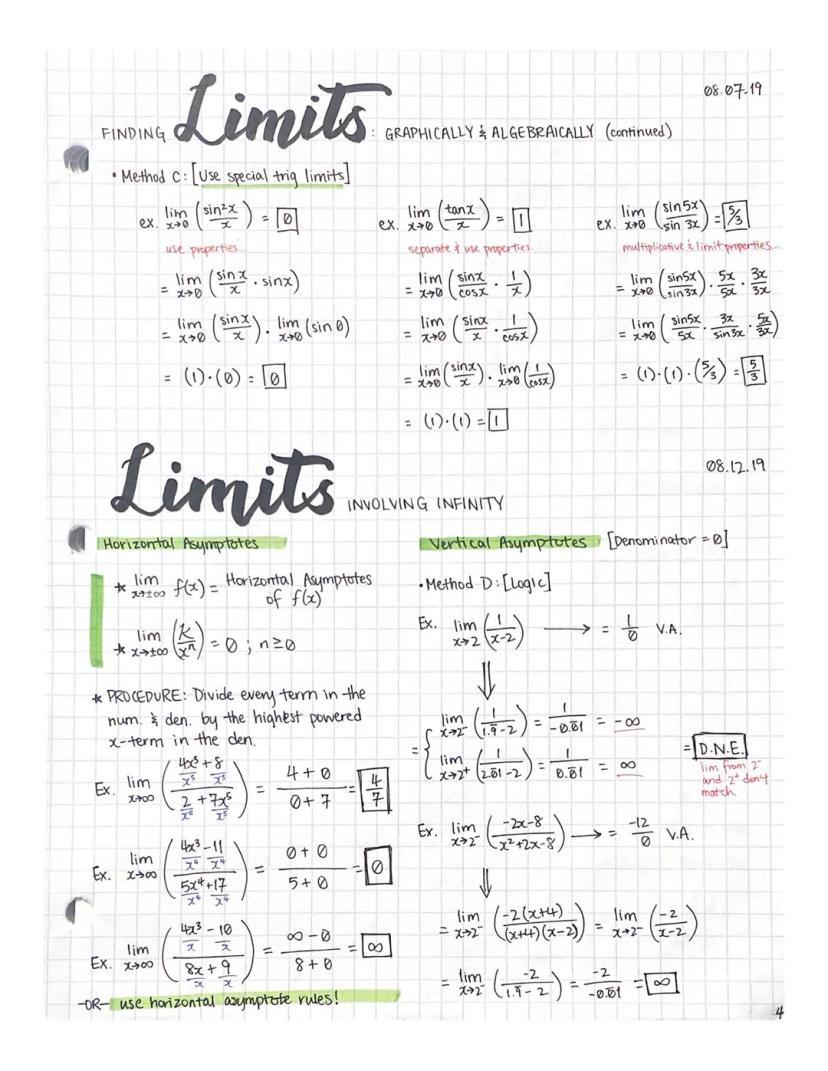 08.07.19
FINDING Limits: GRAPHICALLY & ALGEBRAICALLY (continued)
• Method C: [Use special trig limits]
ex. lim x→0 (sin²x / x) = 0
use properties...
= lim x→0 (sin x / x · sin x)
= lim x→0 (sin x / x) · lim x→0 (sin 0)
= (1)·(0) = 0
ex. lim x→0 (tan x / x) = 1
separate & use properties...
= lim x→0 (sin x / cos x · 1/x)
= lim x→0 (sin x / x · 1 / cos x)
= lim x→0 (sin x / x) · lim x→0 (1 / cos x)
= (1)·(1) = 1
ex. lim x→0 (sin 5x / sin 3x) = 5/3
multiplicative & limit properties...
= lim x→0 (sin 5x / sin 3x) · 5x/5x · 3x/3x
= lim x→0 (sin 5x / 5x · 3x / sin 3x · 5x/3x)
= (1)·(1)·(5/3) = 5/3
08.12.19
Limits INVOLVING INFINITY
Horizontal Asymptotes
* lim x→±∞ f(x) = Horizontal Asymptotes
of f(x)
* lim x→±∞ (k / xⁿ) = 0 ; n≥0
* PROCEDURE: Divide every term in the
num. & den. by the highest powered
x-term in the den.
Ex. lim x→∞ ((4x⁵/x⁵ + 8/x⁵) / (2/x⁵ + 7x⁵/x⁵)) = (4 + 0) / (0 + 7) = 4/7
Ex. lim x→∞ ((4x³/x⁴ - 11/x⁴) / (5x⁴/x⁴ + 17/x⁴)) = (0 + 0) / (5 + 0) = 0
Ex. lim x→∞ ((4x³/x - 10/x) / (8x/x + 9/x)) = (∞ - 0) / (8 + 0) = ∞
-OR- use horizontal asymptote rules!
Vertical Asymptotes [Denominator = 0]
• Method D: [Logic]
Ex. lim x→2 (1 / (x-2)) → = 1/0 V.A.
⇓
= { lim x→2⁻ (1 / (1.9̄ - 2)) = 1 / -0.0̄1 = -∞
lim x→2⁺ (1 / (2.0̄1 - 2)) = 1 / 0.0̄1 = ∞
= D.N.E.
lim from 2⁻
and 2⁺ don't
match
Ex. lim x→2⁻ ((-2x-8) / (x²+2x-8)) → = -12/0 V.A.
⇓
= lim x→2⁻ (-2(x+4) / (x+4)(x-2)) = lim x→2⁻ (-2 / (x-2))
= lim x→2⁻ (-2 / (1.9̄ - 2)) = -2 / -0.0̄1 = ∞
4